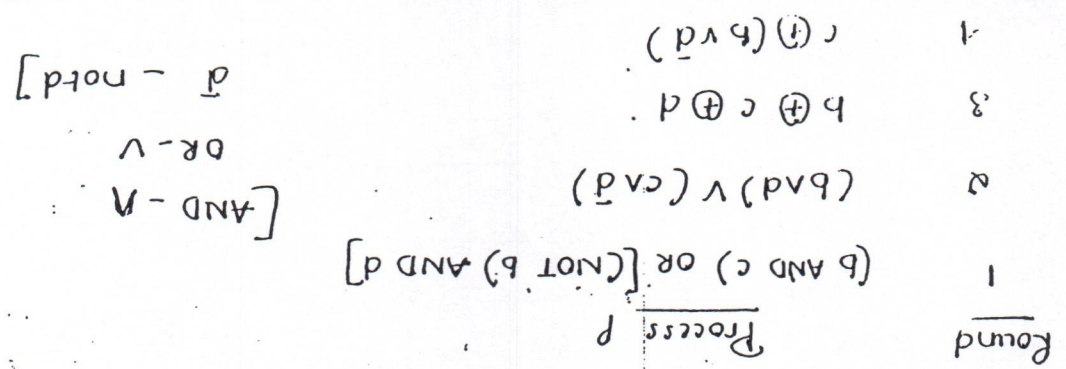 Round Process P
1 (b AND c) OR [(NOT b) AND d]
2 (b∧d) ∨ (c∧d̄) [AND - ∧
OR - ∨
3 b ⊕ c ⊕ d .
d̄ - not d]
4 c ⊕ (b ∨ d̄)